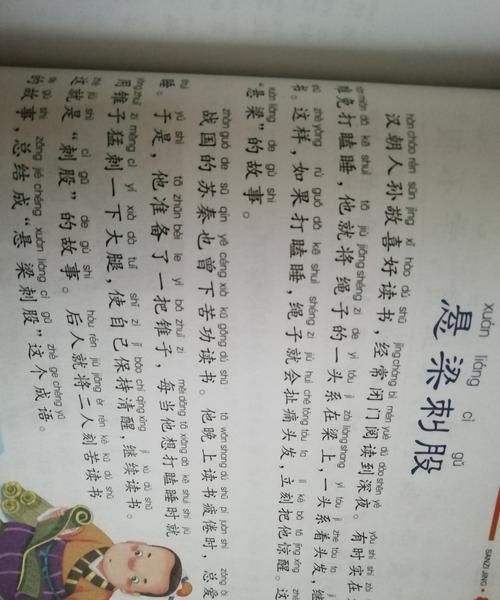 xuán liáng cì gǔ
悬梁刺股
hàn cháo rén sūn jìng xǐ hào dú shū jīng cháng bì mén yuè dú dào shēn yè yǒu shí shí
汉朝人孙敬喜好读书，经常闭门阅读到深夜。有时实在
dǎ kē shuì tā jiù jiāng shéng zi de yì tóu jì zài liáng shang yì tóu jì zhe tóu fa
难免打瞌睡，他就将绳子的一头系在梁上，一头系着头发，继
shū zhè yàng rú guǒ dǎ kē shuì shéng zi jiù huì chě tòng tóu fa lì kè bǎ tā jīng xǐng
书。这样，如果打瞌睡，绳子就会扯痛头发，立刻把他惊醒。这
xuán liáng de gù shi
“悬梁”的故事。
zhàn guó de sū qín yě céng xià kǔ gōng dú shū tā wǎn shang dú shū pí juàn shí zǒng ài
战国的苏秦也曾下苦功读书。他晚上读书疲倦时，总爱
shuì yú shì tā zhǔn bèi le yì bǎ zhuī zi měi dāng tā xiǎng dǎ kē shuì shí jiù
睡。于是，他准备了一把锥子，每当他想打瞌睡时就
yòng zhuī zi měng cì yí xià dà tuǐ shǐ zì jǐ bǎo chí qīng xǐng jì xù dú shū
用锥子猛刺一下大腿，使自己保持清醒，继续读书。
zhè jiù shì cì gǔ de gù shi hòu rén jiù jiāng èr rén kè kǔ dú shū
这就是“刺股”的故事。后人就将二人刻苦读书
de gù shi zǒng jié chéng xuán liáng cì gǔ zhè ge chéng yǔ
的故事，总结成“悬梁刺股”这个成语。
SANZI JING